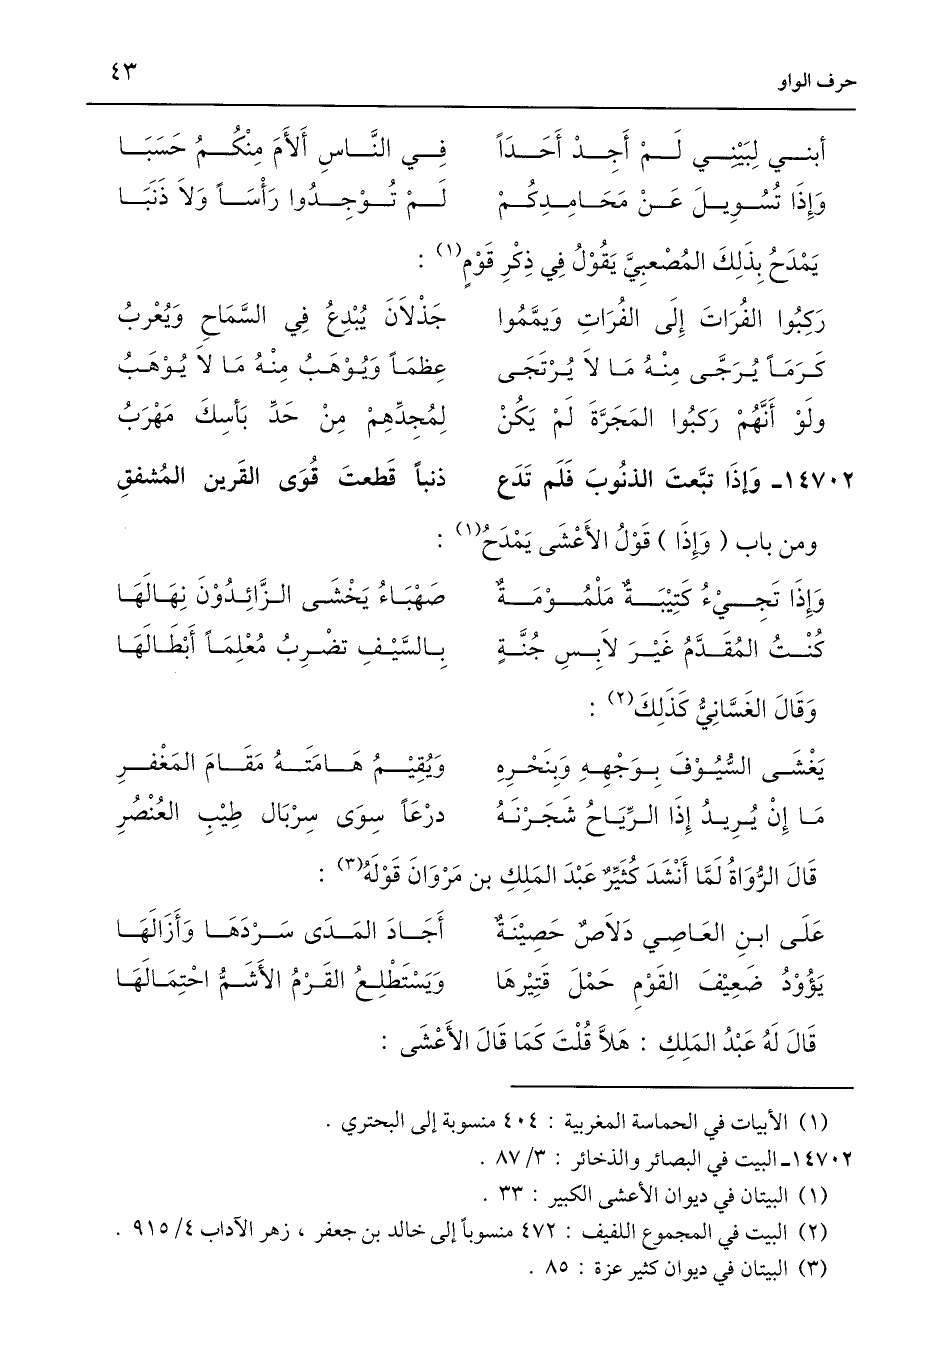 حرف الواو ٤٣
أبنــي لِبَيْنِــي لَــمْ أَجِــدْ أَحَــدَاً فِــي النَّــاسِ أَلأَمَ مِنْكُــمُ حَسَبَـا
وَإِذَا تُسُــوِيــلَ عَــنْ مَحَــامِــدِكُــمْ لَــمْ تُــوْجَــدُوا رَأْسَــاً وَلاَ ذَنَبَـا
يَمْدَحُ بِذَلِكَ المُصْعبِيَّ يَقُوْلُ فِي ذِكْرِ قَوْمٍ(١) :
رَكِبُوا الفُرَاتَ إِلَى الفُرَاتِ وَيَمَّمُوا جَذْلاَنَ يُبْدِعُ فِي السَّمَاحِ وَيُغْرِبُ
كَـرَمَـاً يُـرَجَّـى مِنْـهُ مَـا لاَ يُـرْتَجَـى عِظمَـاً وَيُـوْهَـبُ مِنْـهُ مَـا لاَ يُـوْهَـبُ
ولَوْ أَنَّهُمْ رَكبُوا المَجَرَّةَ لَمْ يَكُنْ لِمُجدِّهِمْ مِنْ حَدِّ بَأسِكَ مَهْرَبُ
١٤٧٠٢ـ وَإِذَا تبَّعتَ الذنُوبَ فَلَم تَدَع ذنباً قَطعتَ قُوَى القَرين المُشفقِ
ومن باب ( وَإِذَا ) قَوْلُ الأَعْشَى يَمْدَحُ(١) :
وَإِذَا تَجــيْءُ كَتِيْبَــةٌ مَلْمُــوْمَــةٌ صَهْبَـاءُ يَخْشَـى الـزَّائِـدُوْنَ نِهَـالَهَـا
كُنْــتُ المُقَــدَّمُ غَيْــرَ لاَبِــسِ جُنَّــةٍ بِـالسَّيْـفِ تضْـرِبُ مُعْلِمَـاً أَبْطَـالَهَـا
وَقَالَ الغَسَّانِيُّ كَذَلِكَ(٢) :
يَغْشَــى السُّيُــوْفَ بِــوَجْهِــهِ وَبِنَحْــرِهِ وَيُقِيْــمُ هَــامَتَــهُ مَقَــامَ المَغْفَــرِ
مَـا إِنْ يُـرِيـدُ إِذَا الـرِّيَـاحُ شَجَـرْنَـهُ درْعَاً سِوَى سِرْبَال طِيْبِ العُنْصُرِ
قَالَ الرُّوَاةُ لَمَّا أَنْشَدَ كُثَيِّرٌ عَبْدَ المَلِكِ بن مَرْوَانَ قَوْلَهُ(٣) :
عَلَـى ابـنِ العَـاصِـي دَلاَصٌ حَصِيْنَـةٌ أَجَـادَ المَـدَى سَـرْدَهَـا وَأَزَالَهَـا
يَؤُوْدُ ضَعِيْفَ القَوْمِ حَمْلَ قَتِيْرِهَا وَيَسْتَطْلِعُ القَرْمُ الأَشَمُّ احْتِمَالَهَـا
قَالَ لَهُ عَبْدُ المَلِكِ : هَلاَّ قُلْتَ كَمَا قَالَ الأَعْشَى :
(١) الأبيات في الحماسة المغربية : ٤٠٤ منسوبة إلى البحتري .
١٤٧٠٢ـ البيت في البصائر والذخائر : ٣/ ٨٧ .
(١) البيتان في ديوان الأعشى الكبير : ٣٣ .
(٢) البيت في المجموع اللفيف : ٤٧٢ منسوباً إلى خالد بن جعفر ، زهر الآداب ٤/ ٩١٥ .
(٣) البيتان في ديوان كثير عزة : ٨٥ .